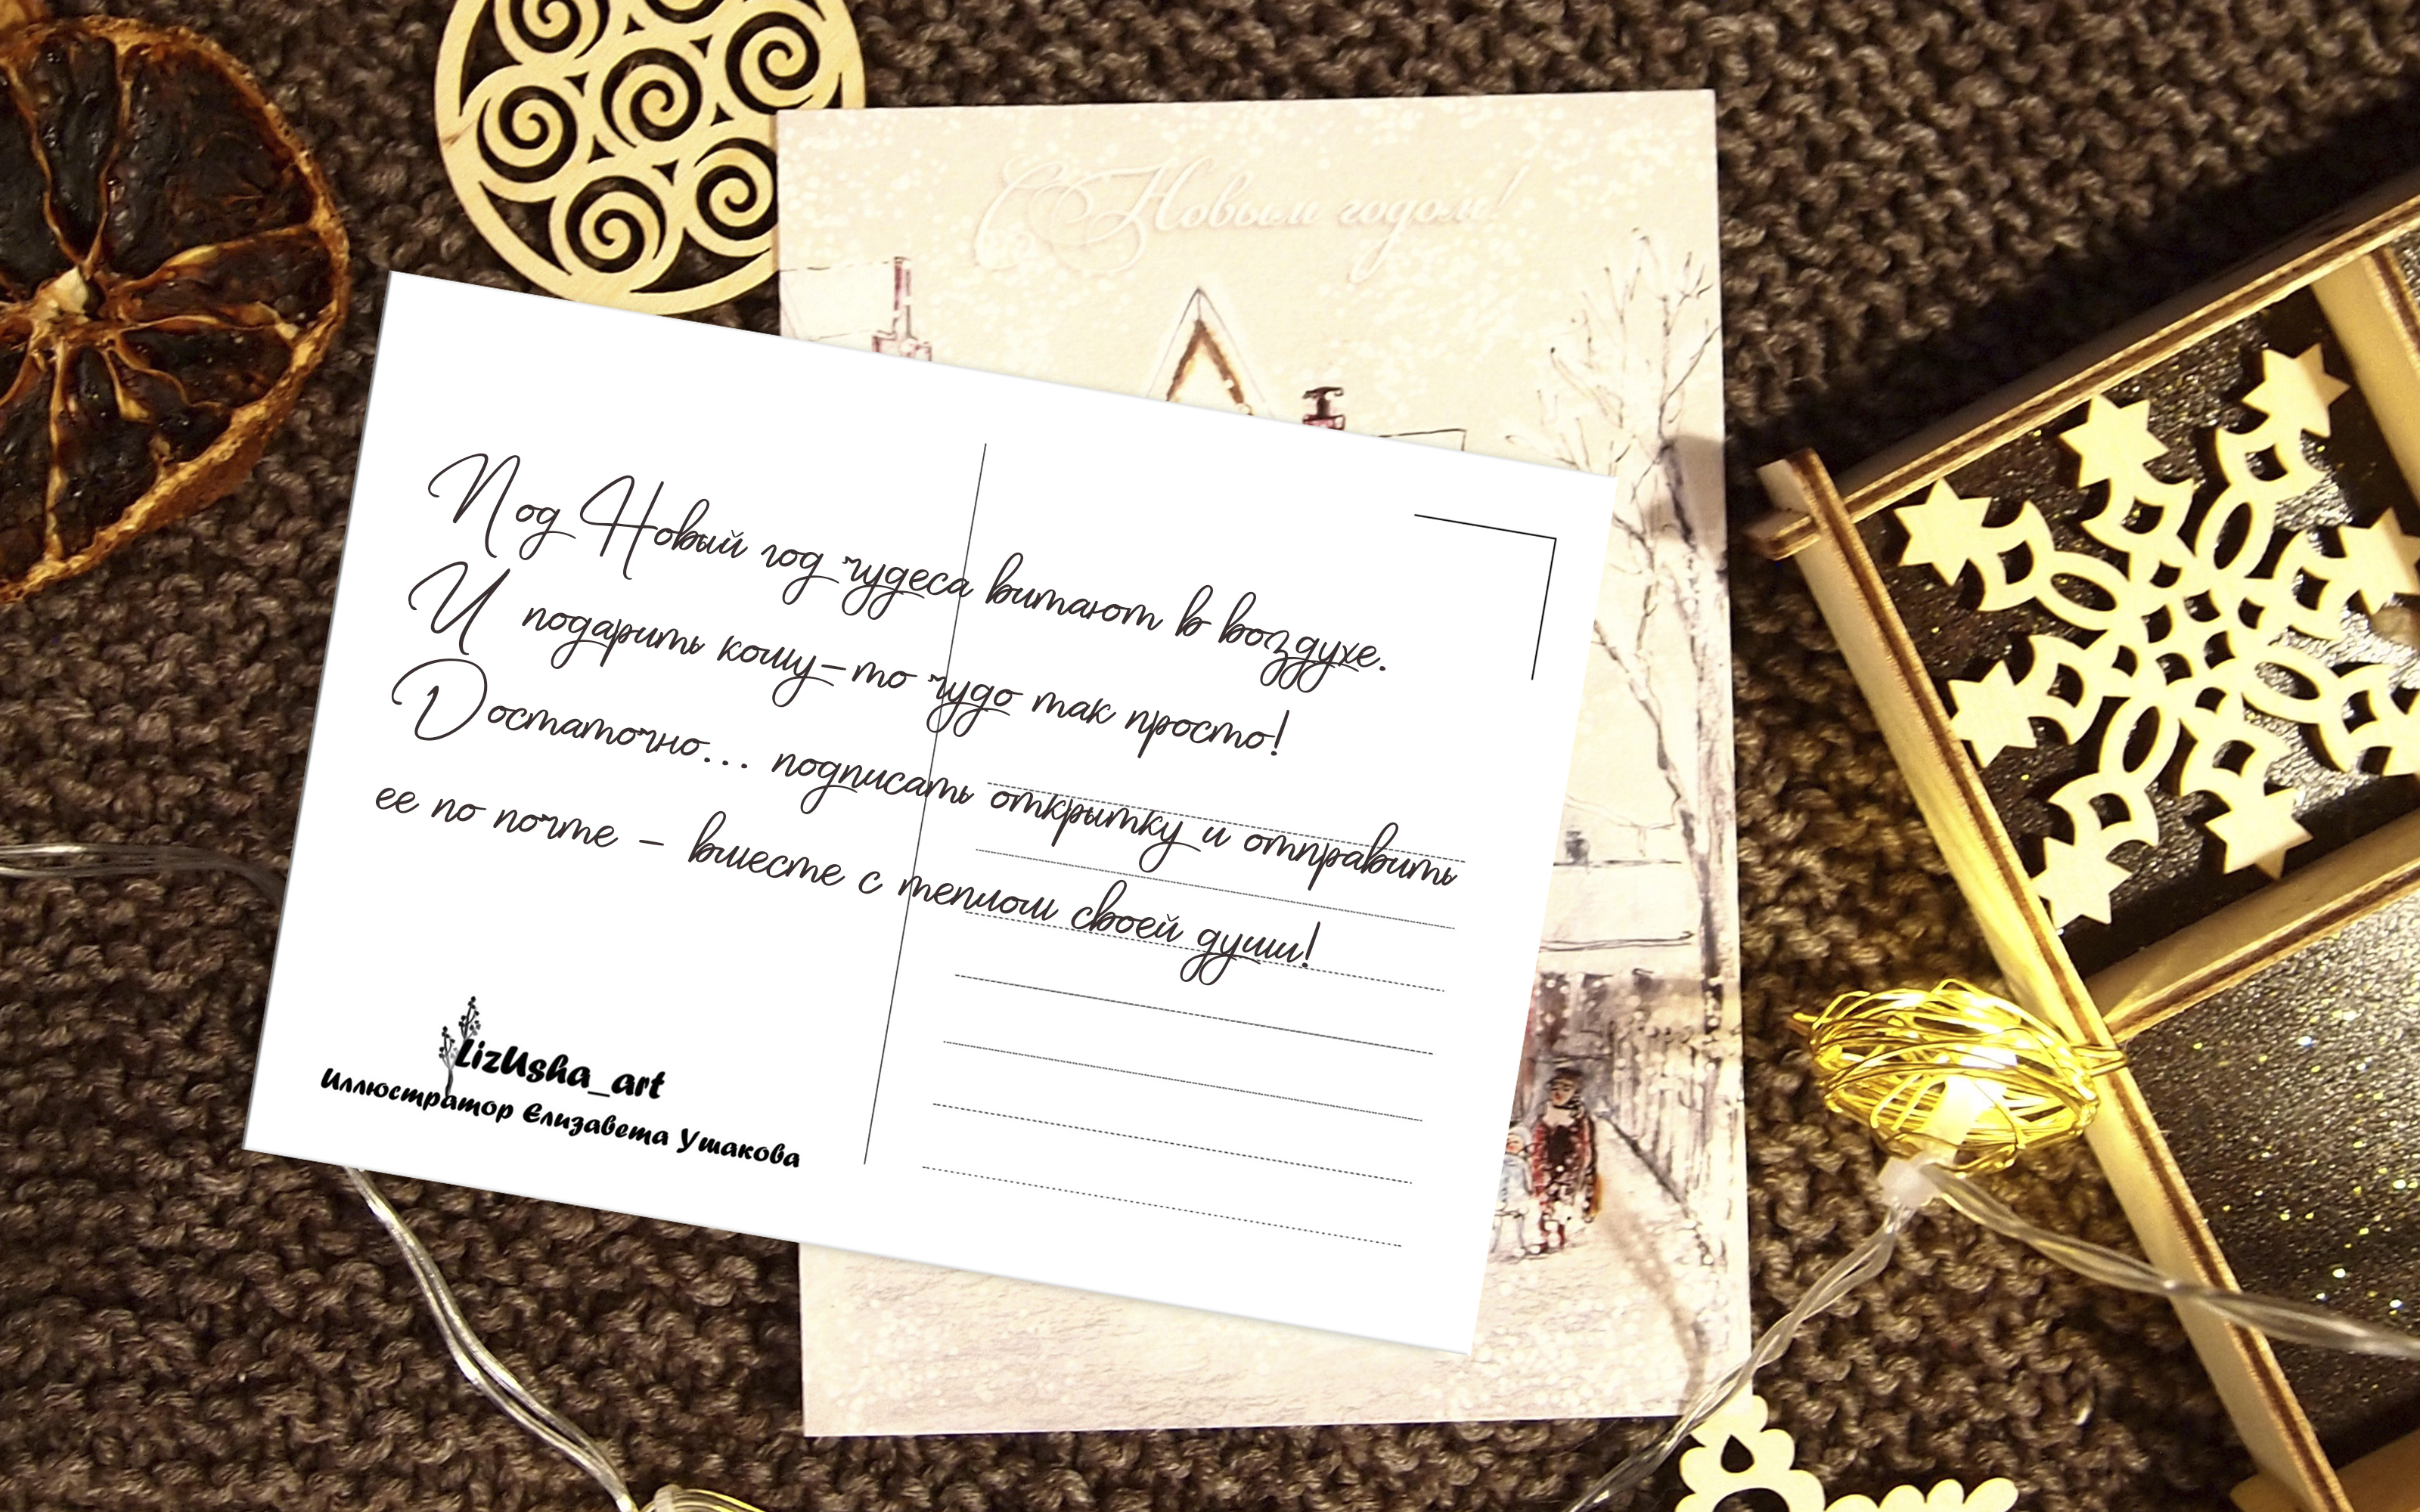 С Новым годом!
Под Новый год чудеса витают в воздухе.
И подарить кому-то чудо так просто!
Достаточно... подписать открытку и отправить
ее по почте - вместе с теплом своей души!
LizUsha_art
Иллюстратор Елизавета Ушакова